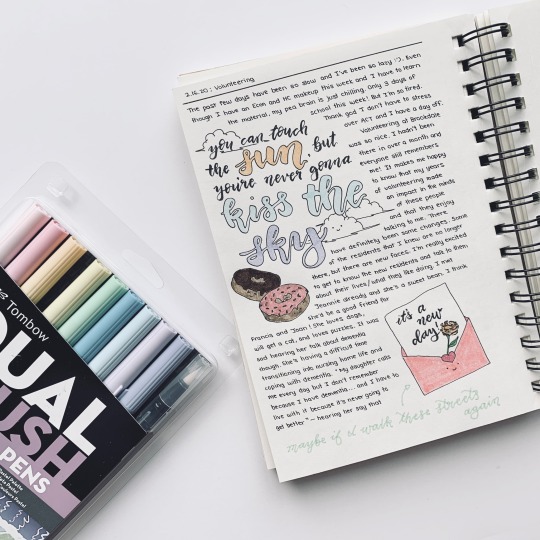 2.16.20 : Volunteering
The past few days have been so slow and I've been so lazy !:). Even
though I have an Econ and HC makeup this week and I have to learn
the material, my pea brain is just chilling. Only 3 days of
school this week! But I'm so tired.
Thank god I don't have to stress
over ACT and I have a day off.
Volunteering at Brookdale
was so nice. I hadn't been
there in over a month and
everyone still remembers
me! It makes me happy
to know that my years
of volunteering made
an impact in the minds
of these people
and that they enjoy
talking to me. There
have definitely been some changes. Some
of the residents that I knew are no longer
there, but there are new faces. I'm really excited
to get to know the new residents and talk to them
about their lives/what they like doing. I met
Jeannie already and she's a sweet bean. I think
she'd be a good friend for
Francis and Joan! She loves dogs,
will get a cat, and loves puzzles. It was
sad hearing her talk about dementia
though. She's having a difficult time
transitioning into nursing home life and
coping with dementia. "My daughter calls
me every day but I don't remember
because I have dementia... and I have to
live with it because it's never going to
get better" — hearing her say that
you can touch
the sun, but
you're never gonna
kiss the
sky
it's a
new
day
maybe if i walk these streets
again
Tombow
DUAL
BRUSH
PENS